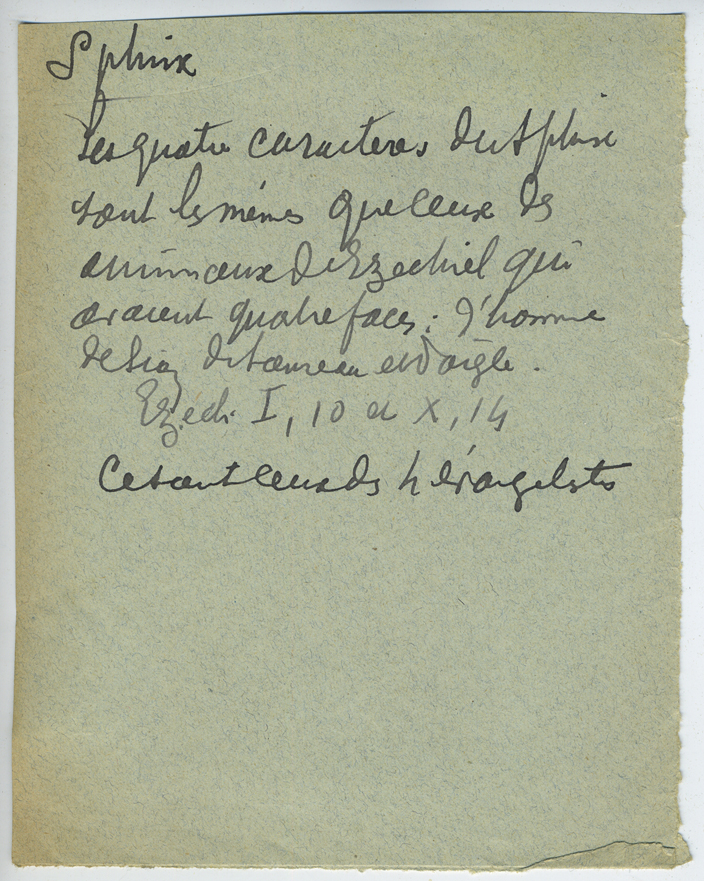 Sphinx
Les quatre caractères du Sphinx
sont les mêmes que ceux des
animaux d'Ezechiel qui
avaient quatre faces : d'homme
de lion de taureau et d'aigle.
Ezech. I, 10 et X, 14
Ce sont ceux des 4 évangelistes